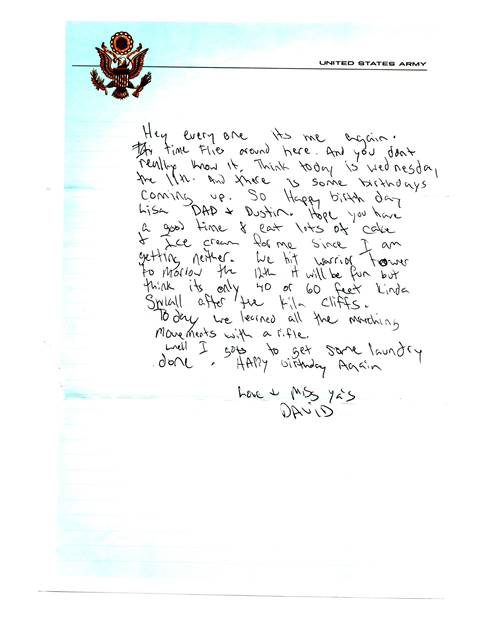 UNITED STATES ARMY
Hey every one its me again.
time Flies around here. And you dont
really know it. Think today is wednesday
the 11th. And there is some birthdays
coming up. So Happy birth day
Lisa DAD & Dustin. Hope you have
a good time & eat lots of cake
& Ice cream for me since I am
getting neither. We hit warrior tower
to morrow the 12th it will be fun but
think its only 40 or 60 feet kinda
Small after the Kila Cliffs.
Today we learned all the marching
movements with a rifle.
well I gots to get some laundry
done. HAPPy birthday Again
Love & Miss ya's
DAViD